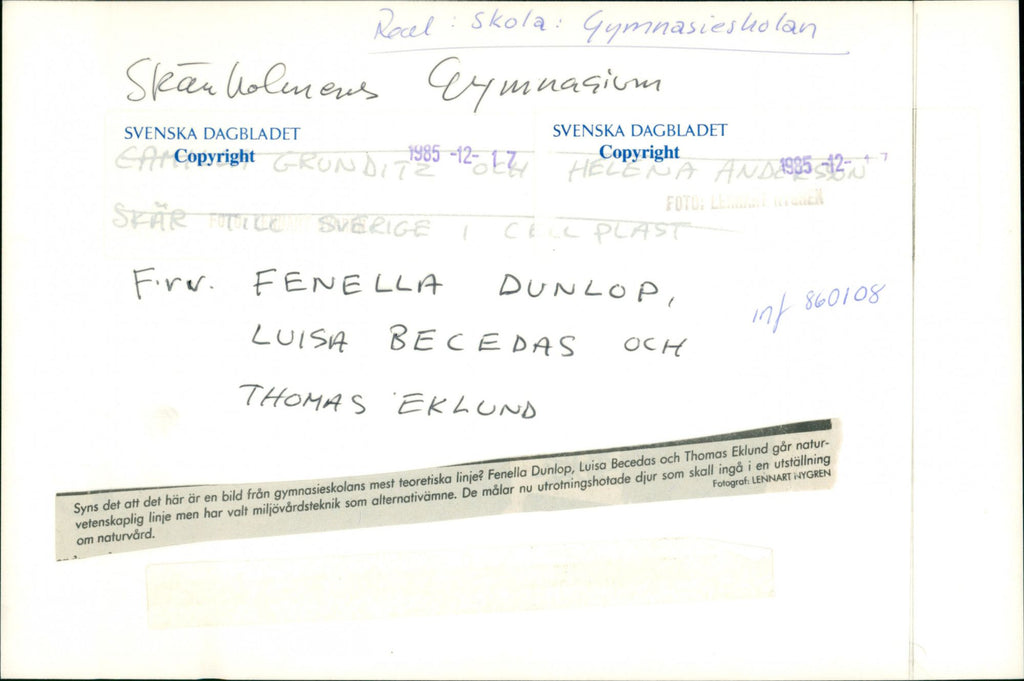 Real : Skola : Gymnasieskolan
Skärholmens Gymnasium
SVENSKA DAGBLADET
Copyright
1985 -12- 17
SVENSKA DAGBLADET
Copyright
1985 -12- 17
GRUNDITZ OCH HELENA ANDERSON
FOTO: LENNART NYGREN
SKÄR TILL SVERIGE I CELLPLAST
F.v. FENELLA DUNLOP,
LUISA BECEDAS OCH
THOMAS EKLUND
inf 860108
Syns det att det här är en bild från gymnasieskolans mest teoretiska linje? Fenella Dunlop, Luisa Becedas och Thomas Eklund går natur-
vetenskaplig linje men har valt miljövårdsteknik som alternativämne. De målar nu utrotningshotade djur som skall ingå i en utställning
om naturvård.
Fotograf: LENNART NYGREN